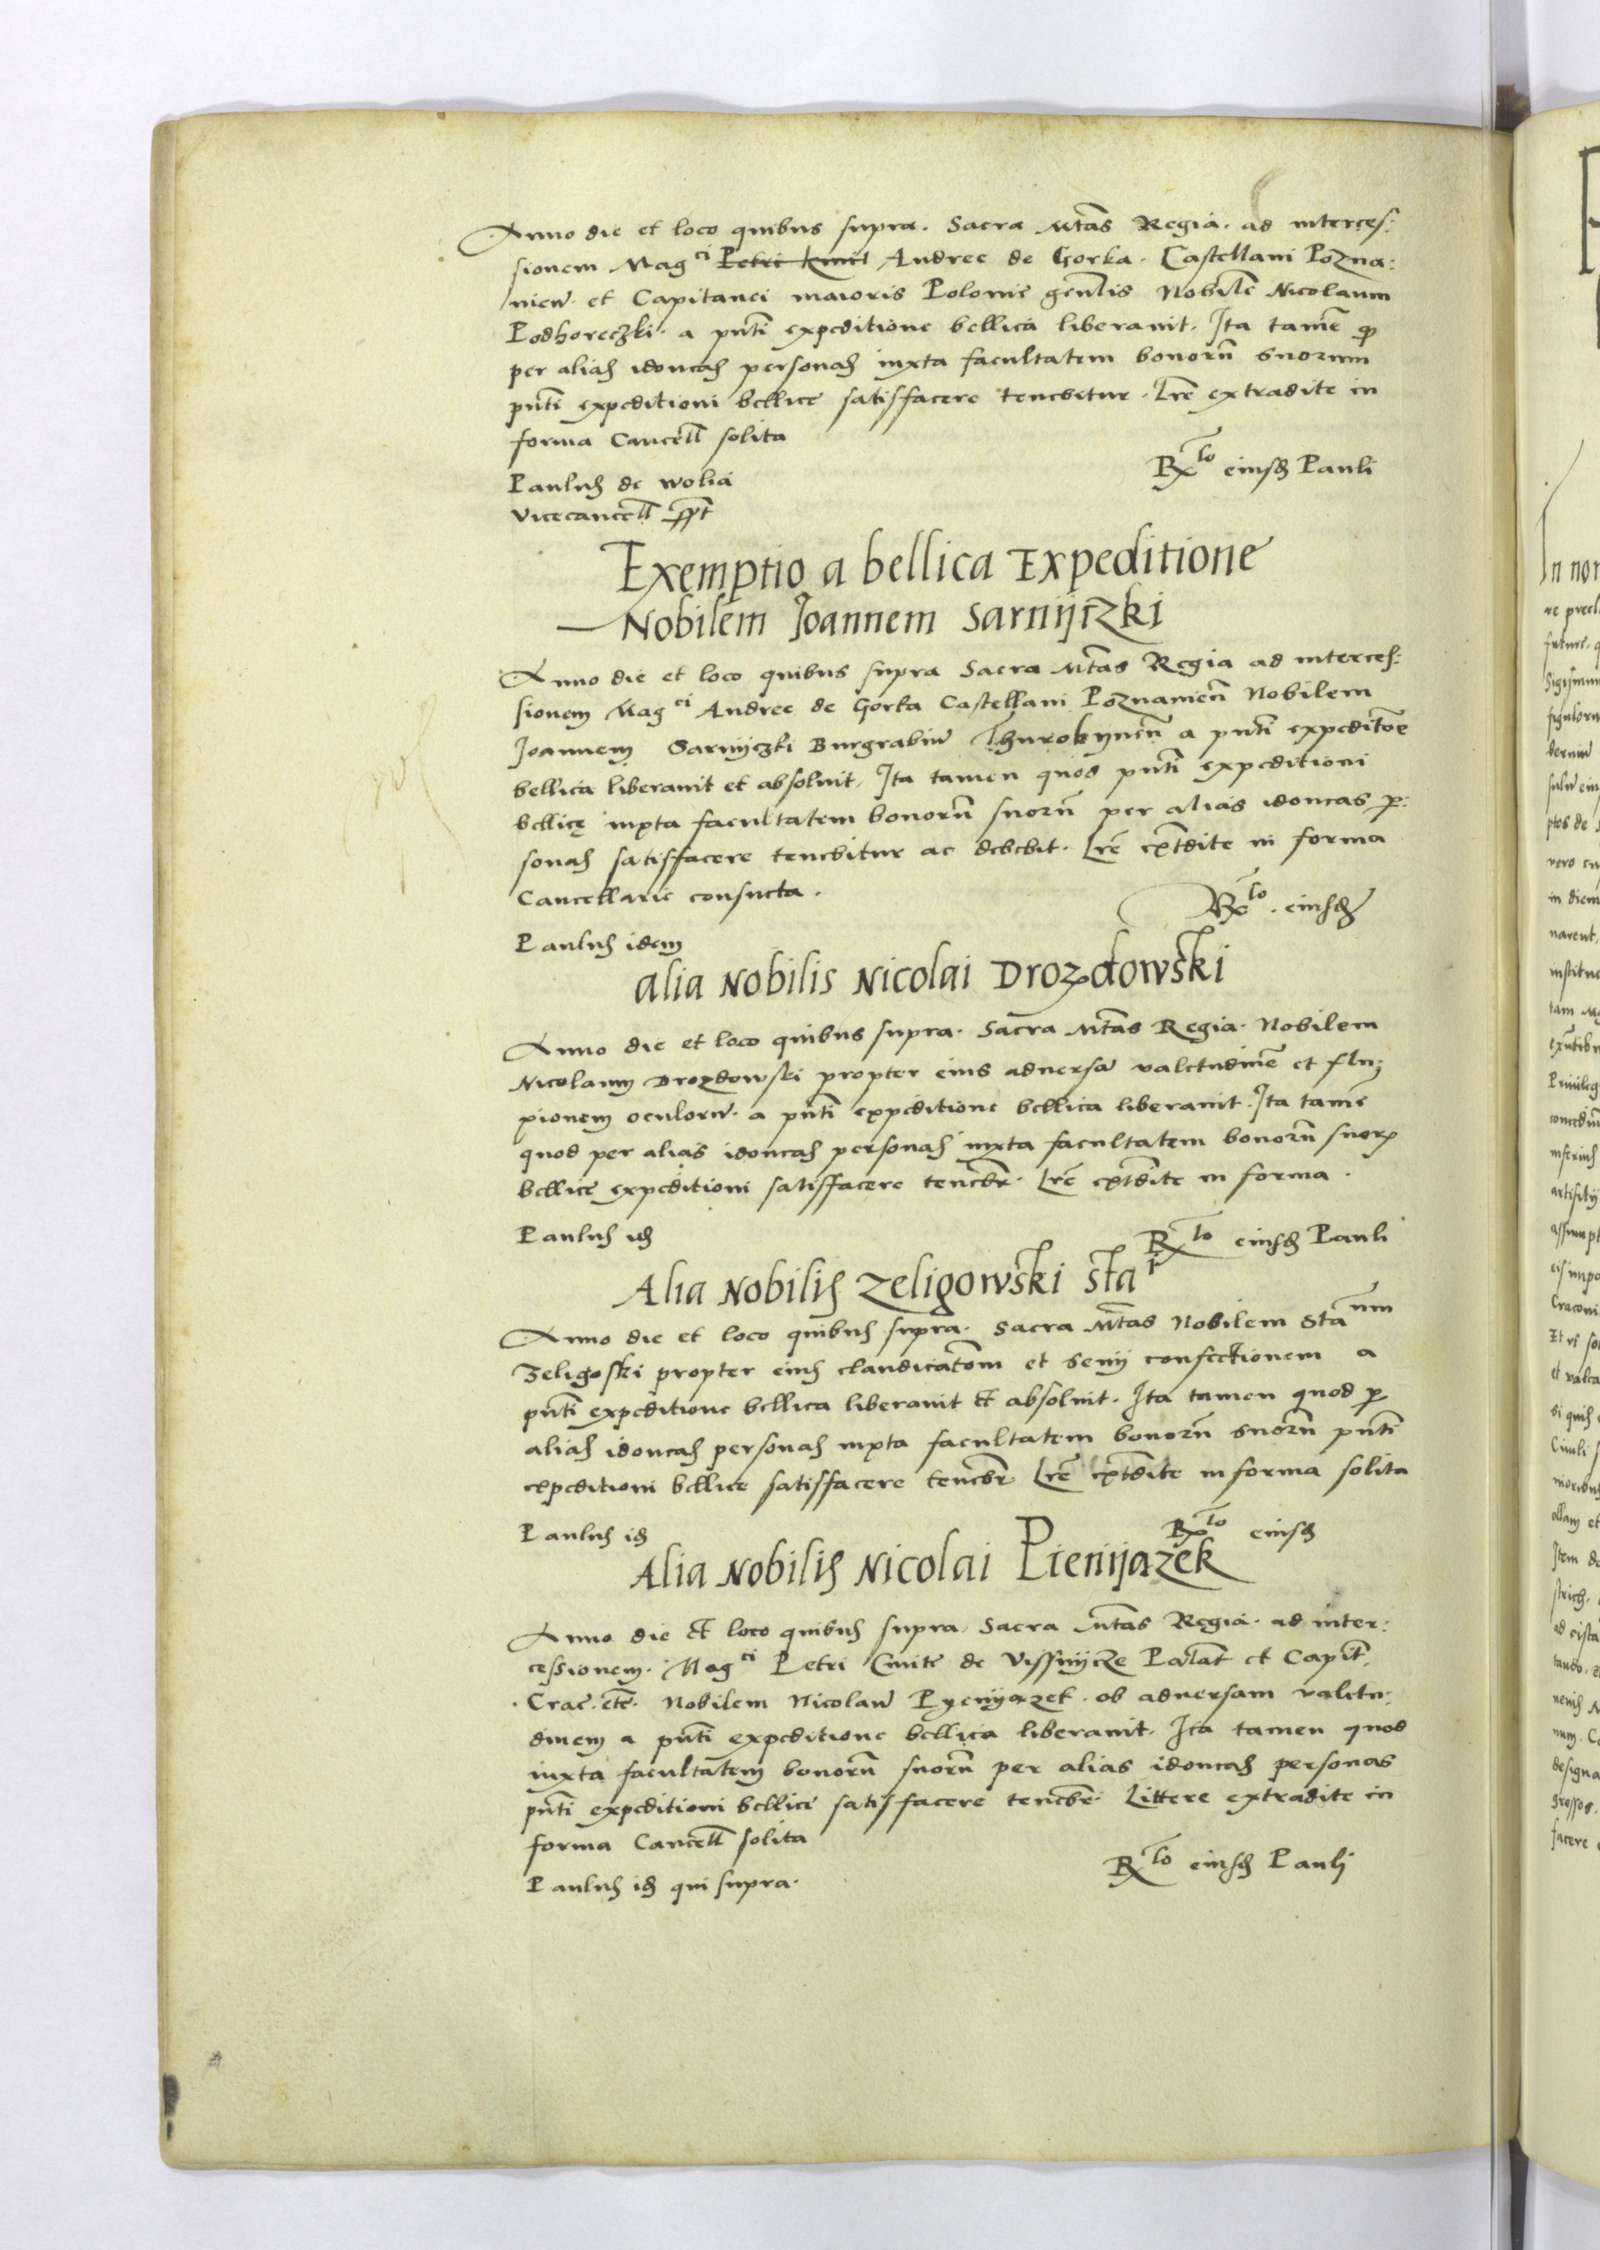 Anno die et loco quibus supra. Sacra Mtas Regia. ad interces:
sionem Mag ci Petri Kmit Andree de Gorka. Castellani Pozna:
nien. et Capitanei maioris Polonie genlis Nobile Nicolaum
Podhoreczki. a pnti expeditione bellica liberauit. Ita tame q
per alias idoneas personas iuxta facultatem bonoru suorum
pnti expeditioni bellice satisfacere tenebitur. Lre extradite in
forma Cancell solita
Rx to eiusd Pauli
Paulus de wolia
vicecancell sspt
Exemptio a bellica Expeditione
Nobilem Joannem Sarnijczki
Anno die et loco quibus supra Sacra Mtas Regia ad interces:
sionem Mag ci Andree de Gorka Castellani Poznanien Nobilem
Joannem Sarnijczki Burgrabiu Thurobynen a pnti expeditoe
bellica liberauit et absoluit. Ita tamen quod pnti expeditioni
bellicę iuxta facultatem bonoru suoru per alias idoneas p:
sonas satisfacere tenebitur ac debebit. Lre extdite in forma
Cancellarie consueta.
Rx to. eiusd
Paulus idem
Alia Nobilis Nicolai Drozdowski
Anno die et loco quibus supra. Sacra Mtas Regia. Nobilem
Nicolaum Drozdowski propter eius aduersa valetudine et flu:
xionem oculoru. a pnti expeditione bellica liberauit. Ita tame
quod per alias idoneas personas iuxta facultatem bonoru suor
bellice expeditioni satisfacere tenebr. Lre extdite in forma.
Paulus id
Rx to eiusd Pauli
Alia Nobilis Zeligowski Sta i
Anno die et loco quibus supra. Sacra Mtas Nobilem Sta um
Zeligoski propter eius claudicatom et senij confectionem a
pnti expeditione bellica liberauit et absoluit. Ita tamen quod p
alias idoneas personas iuxta facultatem bonoru suoru pnti
expeditioni bellice satisfacere tenebr. Lre extdite in forma solita
Paulus id
Rx to eiusd
Alia Nobilis Nicolai Pienijazek
Anno die et loco quibus supra. Sacra Mtas Regia. ad inter:
cessionem. Mag ci Petri Cmite de Vissnijcze Palat et Capit.
Crac. etc. Nobilem Nicolau Pyenyazek. ob aduersam valetu:
dinem a pnti expeditione bellica liberauit. Ita tamen quod
iuxta facultatem bonoru suoru per alias idoneas personas
pnti expeditioni bellice satisfacere tenebr. Littere extradite in
forma Cancell solita
Rx to eiusd Pauli
Paulus id qui supra.